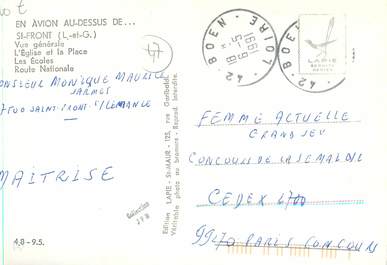 EN AVION AU-DESSUS DE...
St-FRONT (L.-et-G.)
Vue générale
L'Église et la Place
Les Écoles
Route Nationale
47
MONSIEUR MONIQUE MAURICE
JARMES
47500 SAINT-FRONT S/LEMANCE
MAITRISE
Collection
J P B
4.8 - 9.5.
Edition LAPIE - St-MAUR - 123, rue Garibaldi
Véritable photo au bromure - Reprod. Interdite.
42 BOEN LOIRE
1991
42 BOEN
LAPIE
FEMME ACTUELLE
GRAND JEU
CONCOURS DE LA SEMAINE
CEDEX 6700
99470 PARIS CONCOURS